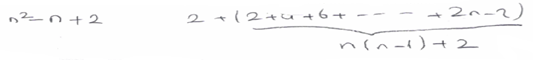 n²-n+2 2+(2+4+6+----+2n-2)
n(n-1)+2